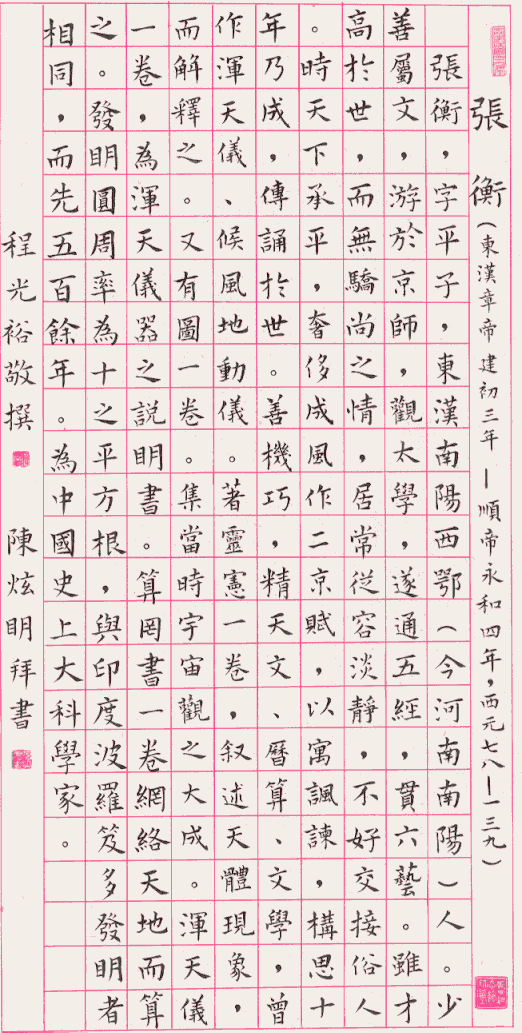 張衡(東漢章帝建初三年—順帝永和四年,西元七八—一三九)
張衡,字平子,東漢南陽西鄂(今河南南陽)人。少
善屬文,游於京師,觀太學,遂通五經,貫六藝。雖才
高於世,而無驕尚之情,居常從容淡靜,不好交接俗人
。時天下承平,奢侈成風,作二京賦,以寓諷諫,構思十
年乃成,傳誦於世。善機巧,精天文、曆算、文學,曾
作渾天儀、候風地動儀。著靈憲一卷,叙述天體現象,
而解釋之。又有圖一卷。集當時宇宙觀之大成。渾天儀
一卷,為渾天儀器之說明書。算罔書一卷網絡天地而算
之。發明圓周率為十之平方根,與印度波羅笈多發明者
相同,而先五百餘年。為中國史上大科學家。
程光裕敬撰 陳炫明拜書